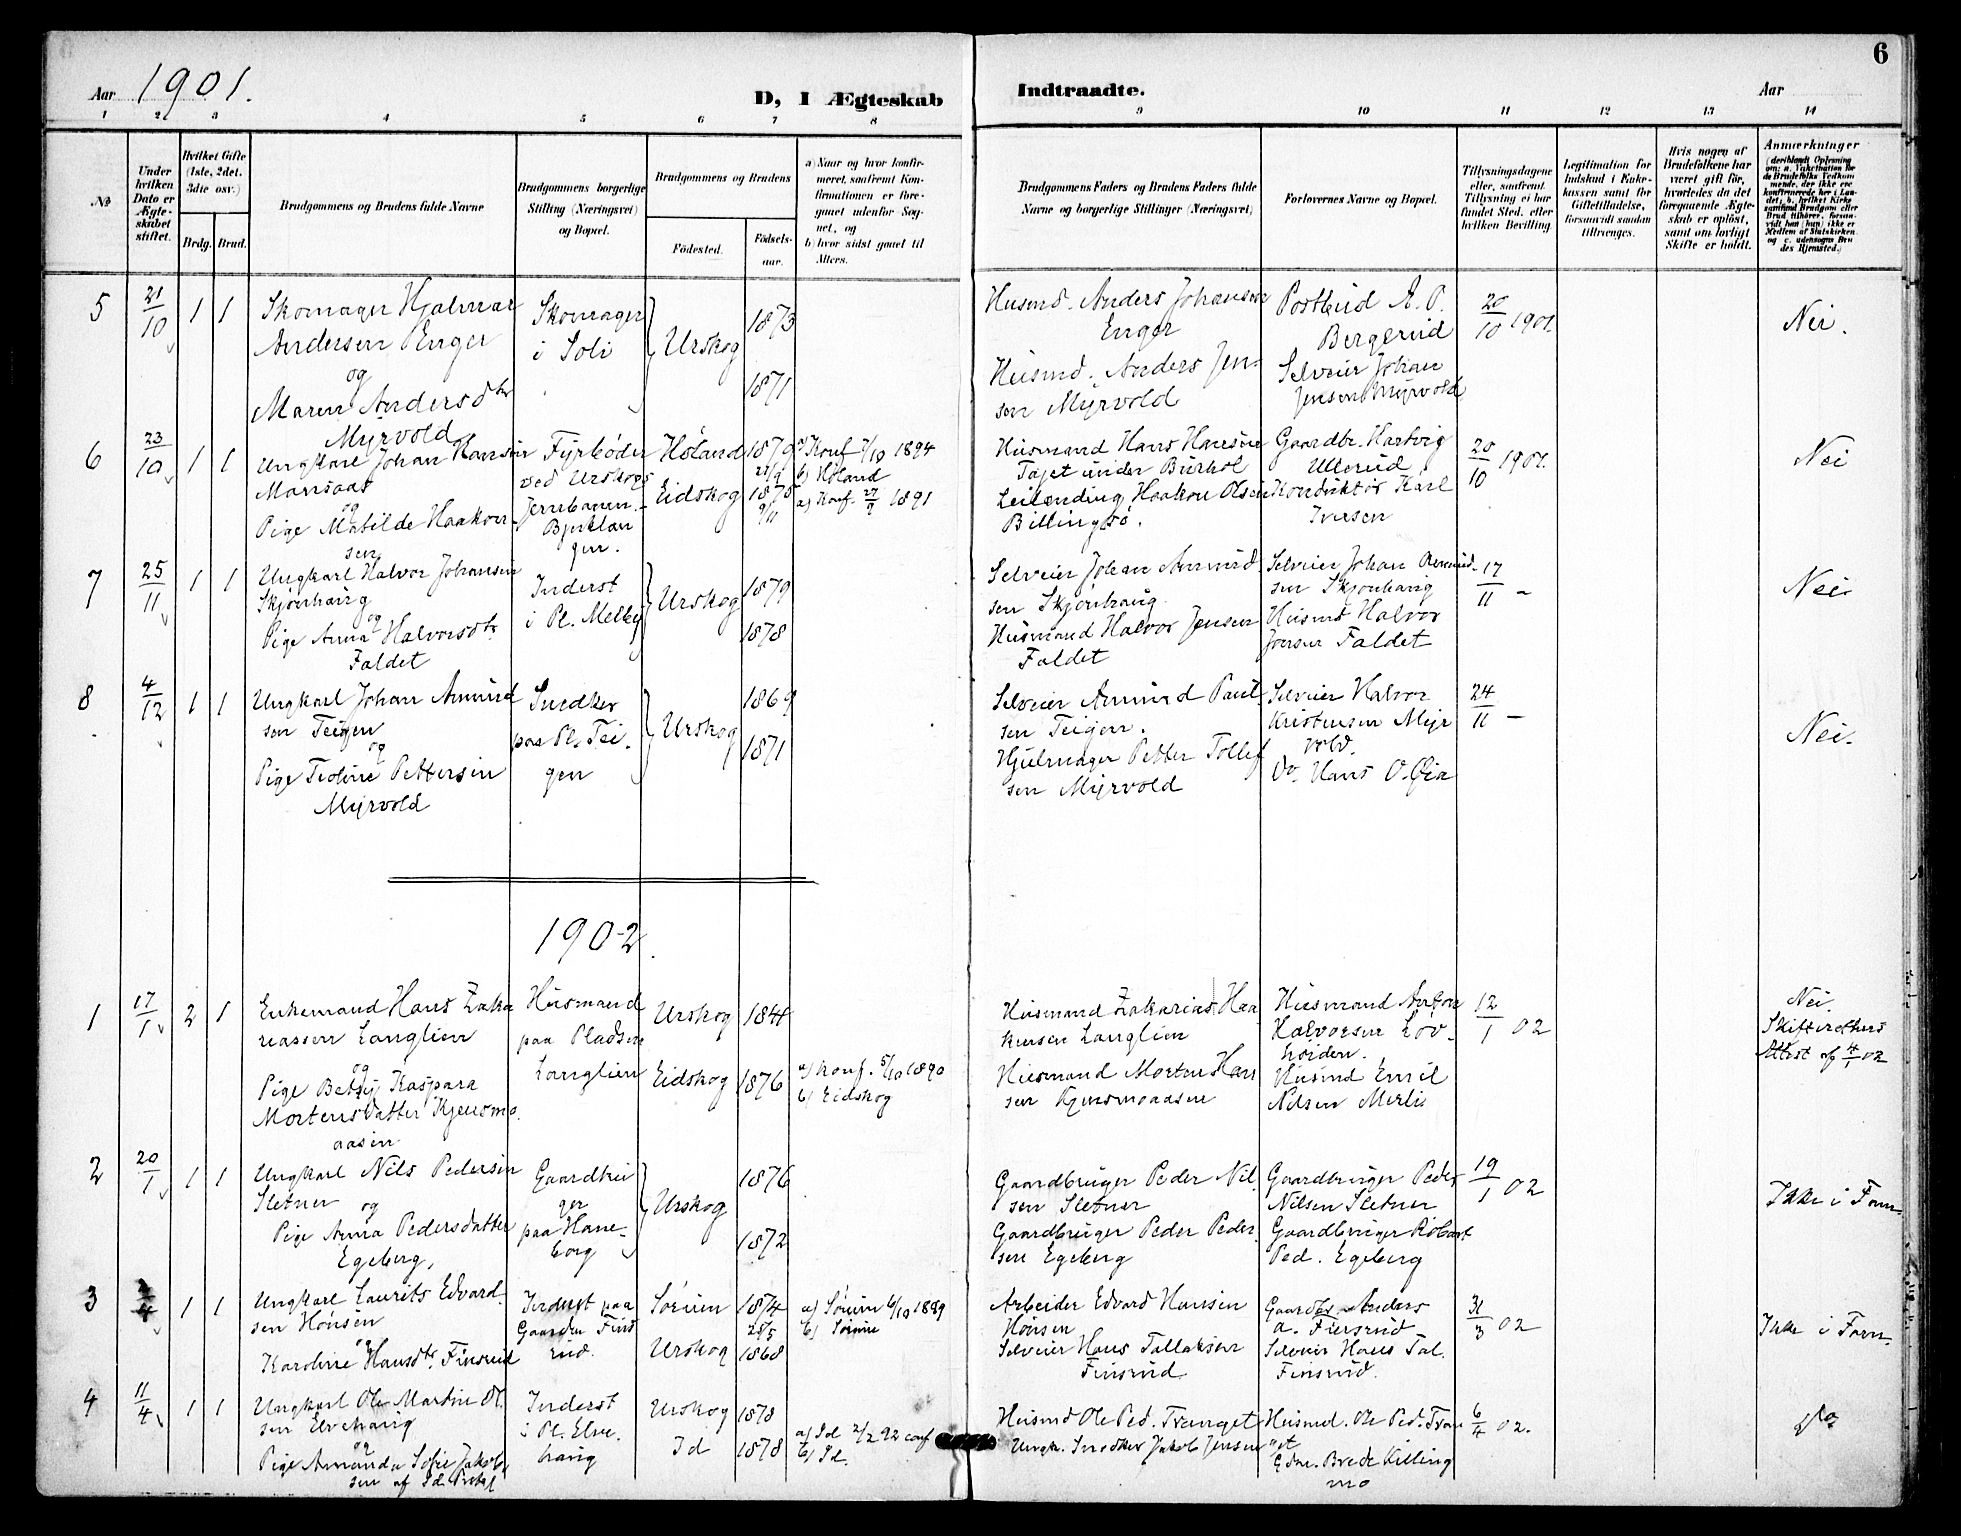 6
Aar 1901.
D, I Ægteskab
Indtraadte.
Aar
1 2 3 4 5 6 7 8 9 10 11 12 13 14
№
Under hvilken Dato er Ægteskabet stiftet.
Hvilket Gifte (1ste, 2det, 3die osv.)
Brdg. Brud.
Brudgommens og Brudens fulde Navne
Brudgommens borgerlige Stilling (Næringsvei) og Bopæl.
Brudgommens og Brudens
Fødested.
Fødselsaar.
a) Naar og hvor konfirmeret, saafremt Konfirmationen er foregaaet udenfor Sognet, og
b) hvor sidst gaaet til Alters.
Brudgommens Faders og Brudens Faders fulde Navne og borgerlige Stillinger (Næringsvei)
Forlovernes Navne og Bopæl.
Tillysningsdagene eller, saafremt Tillysning ei har fundet Sted, efter hvilken Bevilling.
Legitimation for Indskud i Enkekassen samt for Giftetilladelse, forsaavidt saadan tiltrænges.
Hvis nogen af Brudefolkene har været gift før, hvorledes da det foregaaende Ægteskab er opløst, samt om lovligt Skifte er holdt.
Anmærkninger
5 21/10 1 1
Skomager Hjalmar
Andersen Enger
og
Maren Andersdtr
Myrvold
Skomager
i Soli
Urskog
1873
1871
Husmd. Anders Johansen
Enger
Husmd. Anders Jen-
sen Myrvold
Postbud A. O.
Bergerud
Selveier Johan
Jensen Myrvold
20/10 1901.
Nei.
6 23/10 1 1
Ungkarl Johan Hansen
Mansaas
og
Pige Matilde Haakon-
sen
Fyrbøder
ved Urskogs
Jernbanen.
Bjørklan
gen.
Høland
Eidskog
1879
1875
9/11
a) Konf. 7/10 1894
b) Høland
a) Konf. 27/9 1891
Husmand Hans Hansen
Tajet under Burhol
Leilending Haakon Olsen
Billingsø.
Gaardbr. Hartvig
Ullerud
Konduktør Karl
Iversen
20/10 1901.
Nei
7 25/11 1 1
Ungkarl Halvor Johansen
Skjønhaug
og
Pige Anna Halvorsdtr
Faldet
Inderst
i Pl. Melby
Urskog
1879
1878
Selveier Johan Amund
sen Skjønhaug
Husmand Halvor Jensen
Faldet
Selveier Johan Amund-
sen Skjønhaug
Husmd Halvor
Jensen Faldet
17/11 -
Nei
8 4/12 1 1
Ungkarl Johan Amund
sen Teigen
og
Pige Teoline Pettersen
Myrvold
Snedker
paa Pl. Tei-
gen
Urskog
1869
1871
Selveier Amund Paul-
sen Teigen.
Hjulmager Petter Tollef
sen Myrvold
Selveier Halvor
Kristensen Myr
vold.
Do. Hans O. Øia
24/11 -
Nei.
1902.
1 17/1 2 1
Enkemand Hans Zaka
riassen Langlien
og
Pige Betsy Kaspara
Mortensdatter Kjensmo
aasen
Husmand
paa Pladsen
Langlien
Urskog
Eidskog
1841
1876
a) Konf. 5/10 1890
b) Eidskog
Husmand Zakarias Haa
kensen Langlien
Husmand Morten Han
sen Kjensmoaasen
Husmand Anton
Halvorsen Lov-
hoiden.
Husmd Emil
Nilsen Merli
12/1 02
Nei.
Skifterettens
Attest af 4/1 02
2 20/1 1 1
Ungkarl Nils Pedersen
Sletner og
Pige Anna Pedersdatter
Egeberg,
Gaardbru
ger
paa Hane-
borg
Urskog
1876
1872
Gaardbruger Peder Nil
sen Sletner
Gaardbruger Peder Peder
sen Egeberg
Gaardbruger Peder
Nilsen Sletner
Gaardbruger Robert
Ped. Egeberg
19/1 02
Ikke i Fam-
3 2/4 1 1
Ungkarl Laurits Edvard-
sen Hönsen
og
Karoline Hansdtr. Finsrud
Inderst paa
Gaarden Fins
rud.
Sørum
Urskog
1874
25/5
1868
a) Sørum 6/10 1889
b) Sørum
Arbeider Edvard Hansen
Hönsen
Selveier Hans Tollaksen
Finsrud
Gaardbr. Anders
A. Finsrud
Selveier Hans Tol.
Finsrud.
31/3 02
Ikke i Fam-
4 11/4 1 1
Ungkarl Ole Martin Ol.
sen Elvehaug
og
Pige Amanda Sofie Jakob
sen af Id Prstgl
Inderst
i Pl. Elve
haug
Urskog
Id
1878
1878
a) Id 2/2 92 conf
b) Id.
Husmd Ole Ped. Tranget
Ungk. Snedker Jakob Jensen
Husmd. Ole Ped. Tran
get
Gdbr. Brede Killing
mo
6/4 02.
Do